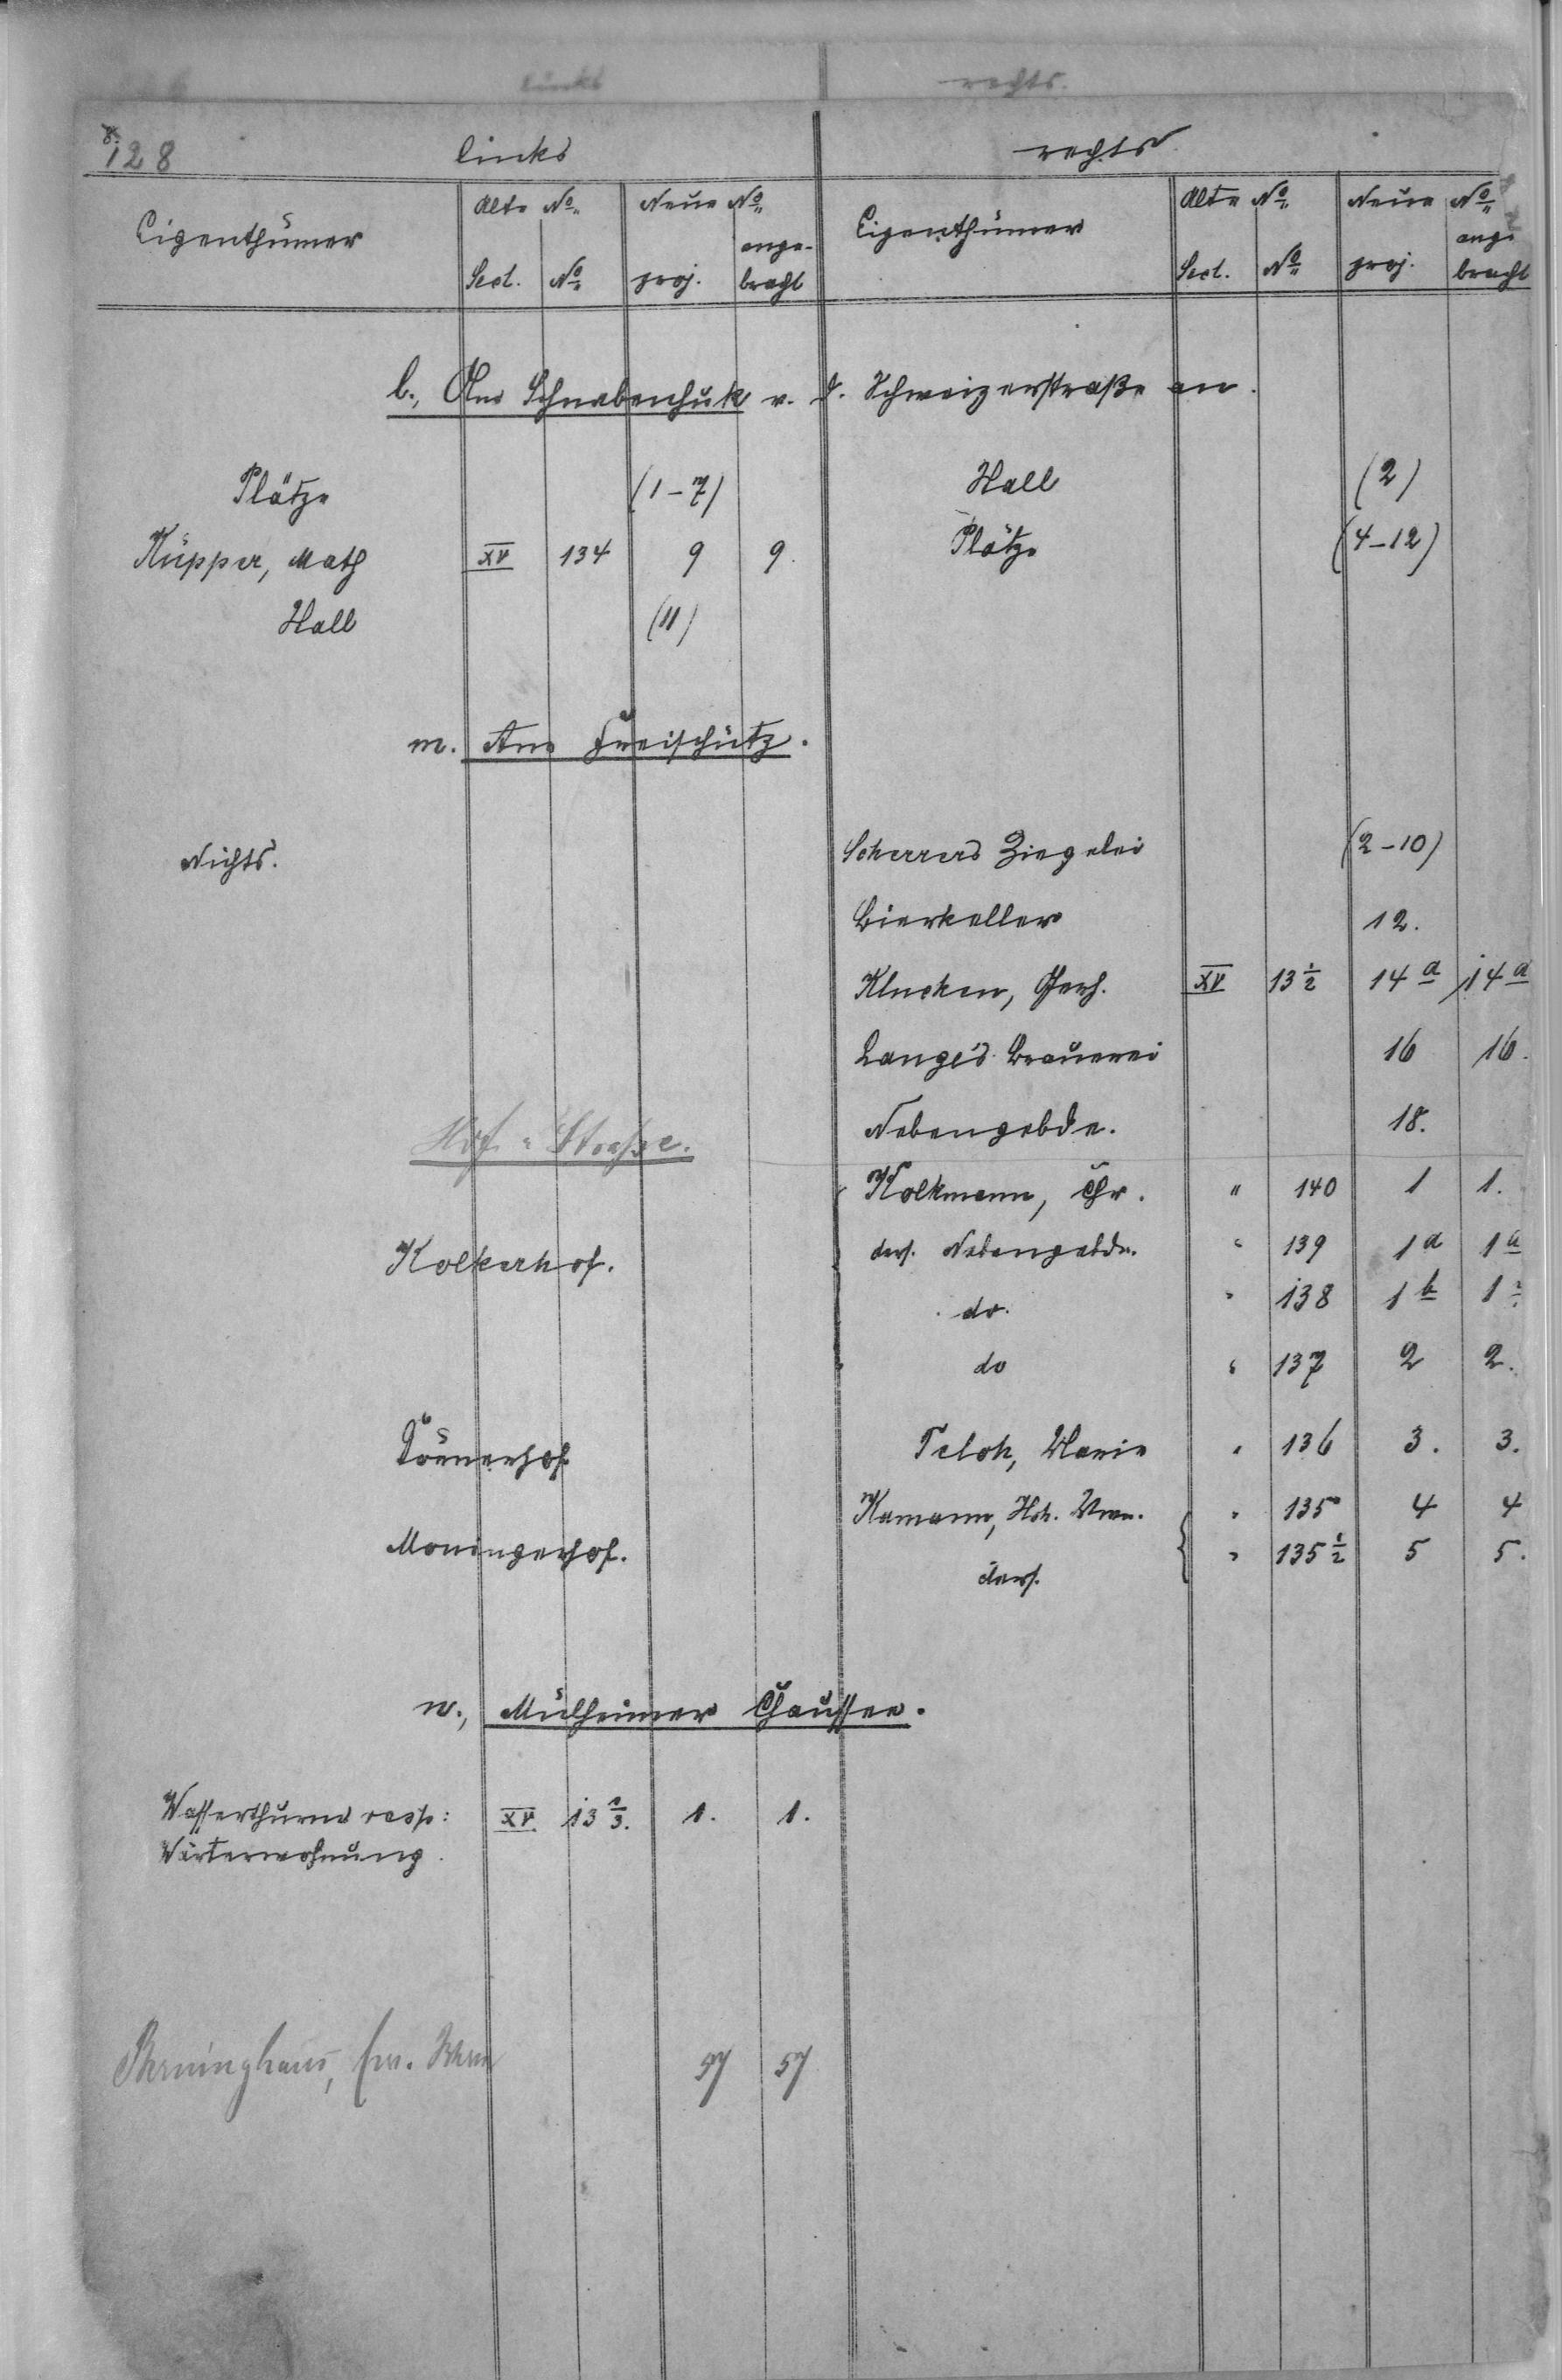 links rechts.
128 links rechts
Eigenthümer Alte No. Neue No. Eigenthümer Alte No. Neue No.
Sect. No. proj. ange-bracht Sect. No. proj. ange bracht
l., Am Schnabenhuk v. d. Schweizerstraße an.
Plätze (1-7) Hall (2)
Küpper, Math XV 134 9 9. Plätze (4-12)
Hall (11)
m. Am Freischütz.
Nichts. Scherrers Ziegelei (2-10)
Bierkeller 12.
Klucken, Gerh. XV 13 1/2 14a 14a
Lange's Brauerei 16 16.
Nebengebde. 18.
Hof-Strasse.
Kolkmann, Chr. " 140 1 1.
Kolkerhof. ders. Nebengebde. " 139 1a 1a
do. " 138 1b 1
do " 137 2 2.
Törnerhof. Teloh, Marie " 136 3. 3.
Kamann, Hch. Wwe. " 135 4 4
Moningerhof. ders. " 135 1/2 5 5.
n., Mülheimer Chaussee.
Wasserthurm resp: XV 13 1/3. 1. 1.
Wärterwohnung.
Berninghaus, Ew. 57 57